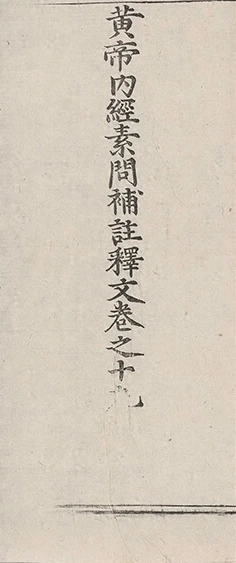 黃帝內經素問補註釋文卷之十九